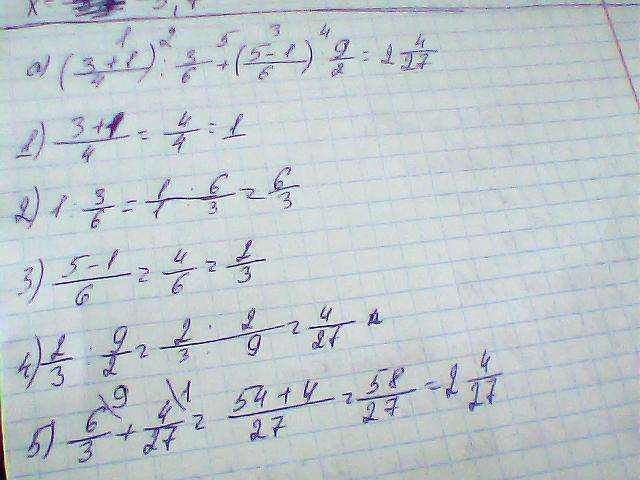 а) (3+1/4) : 3/6 + (5-1/6) : 9/2 = 2 4/27
1) 3+1/4 = 4/4 = 1
2) 1 : 3/6 = 1/1 · 6/3 = 6/3
3) 5-1/6 = 4/6 = 2/3
4) 2/3 : 9/2 = 2/3 · 2/9 = 4/27
5) 6/3 + 4/27 = 54+4/27 = 58/27 = 2 4/27